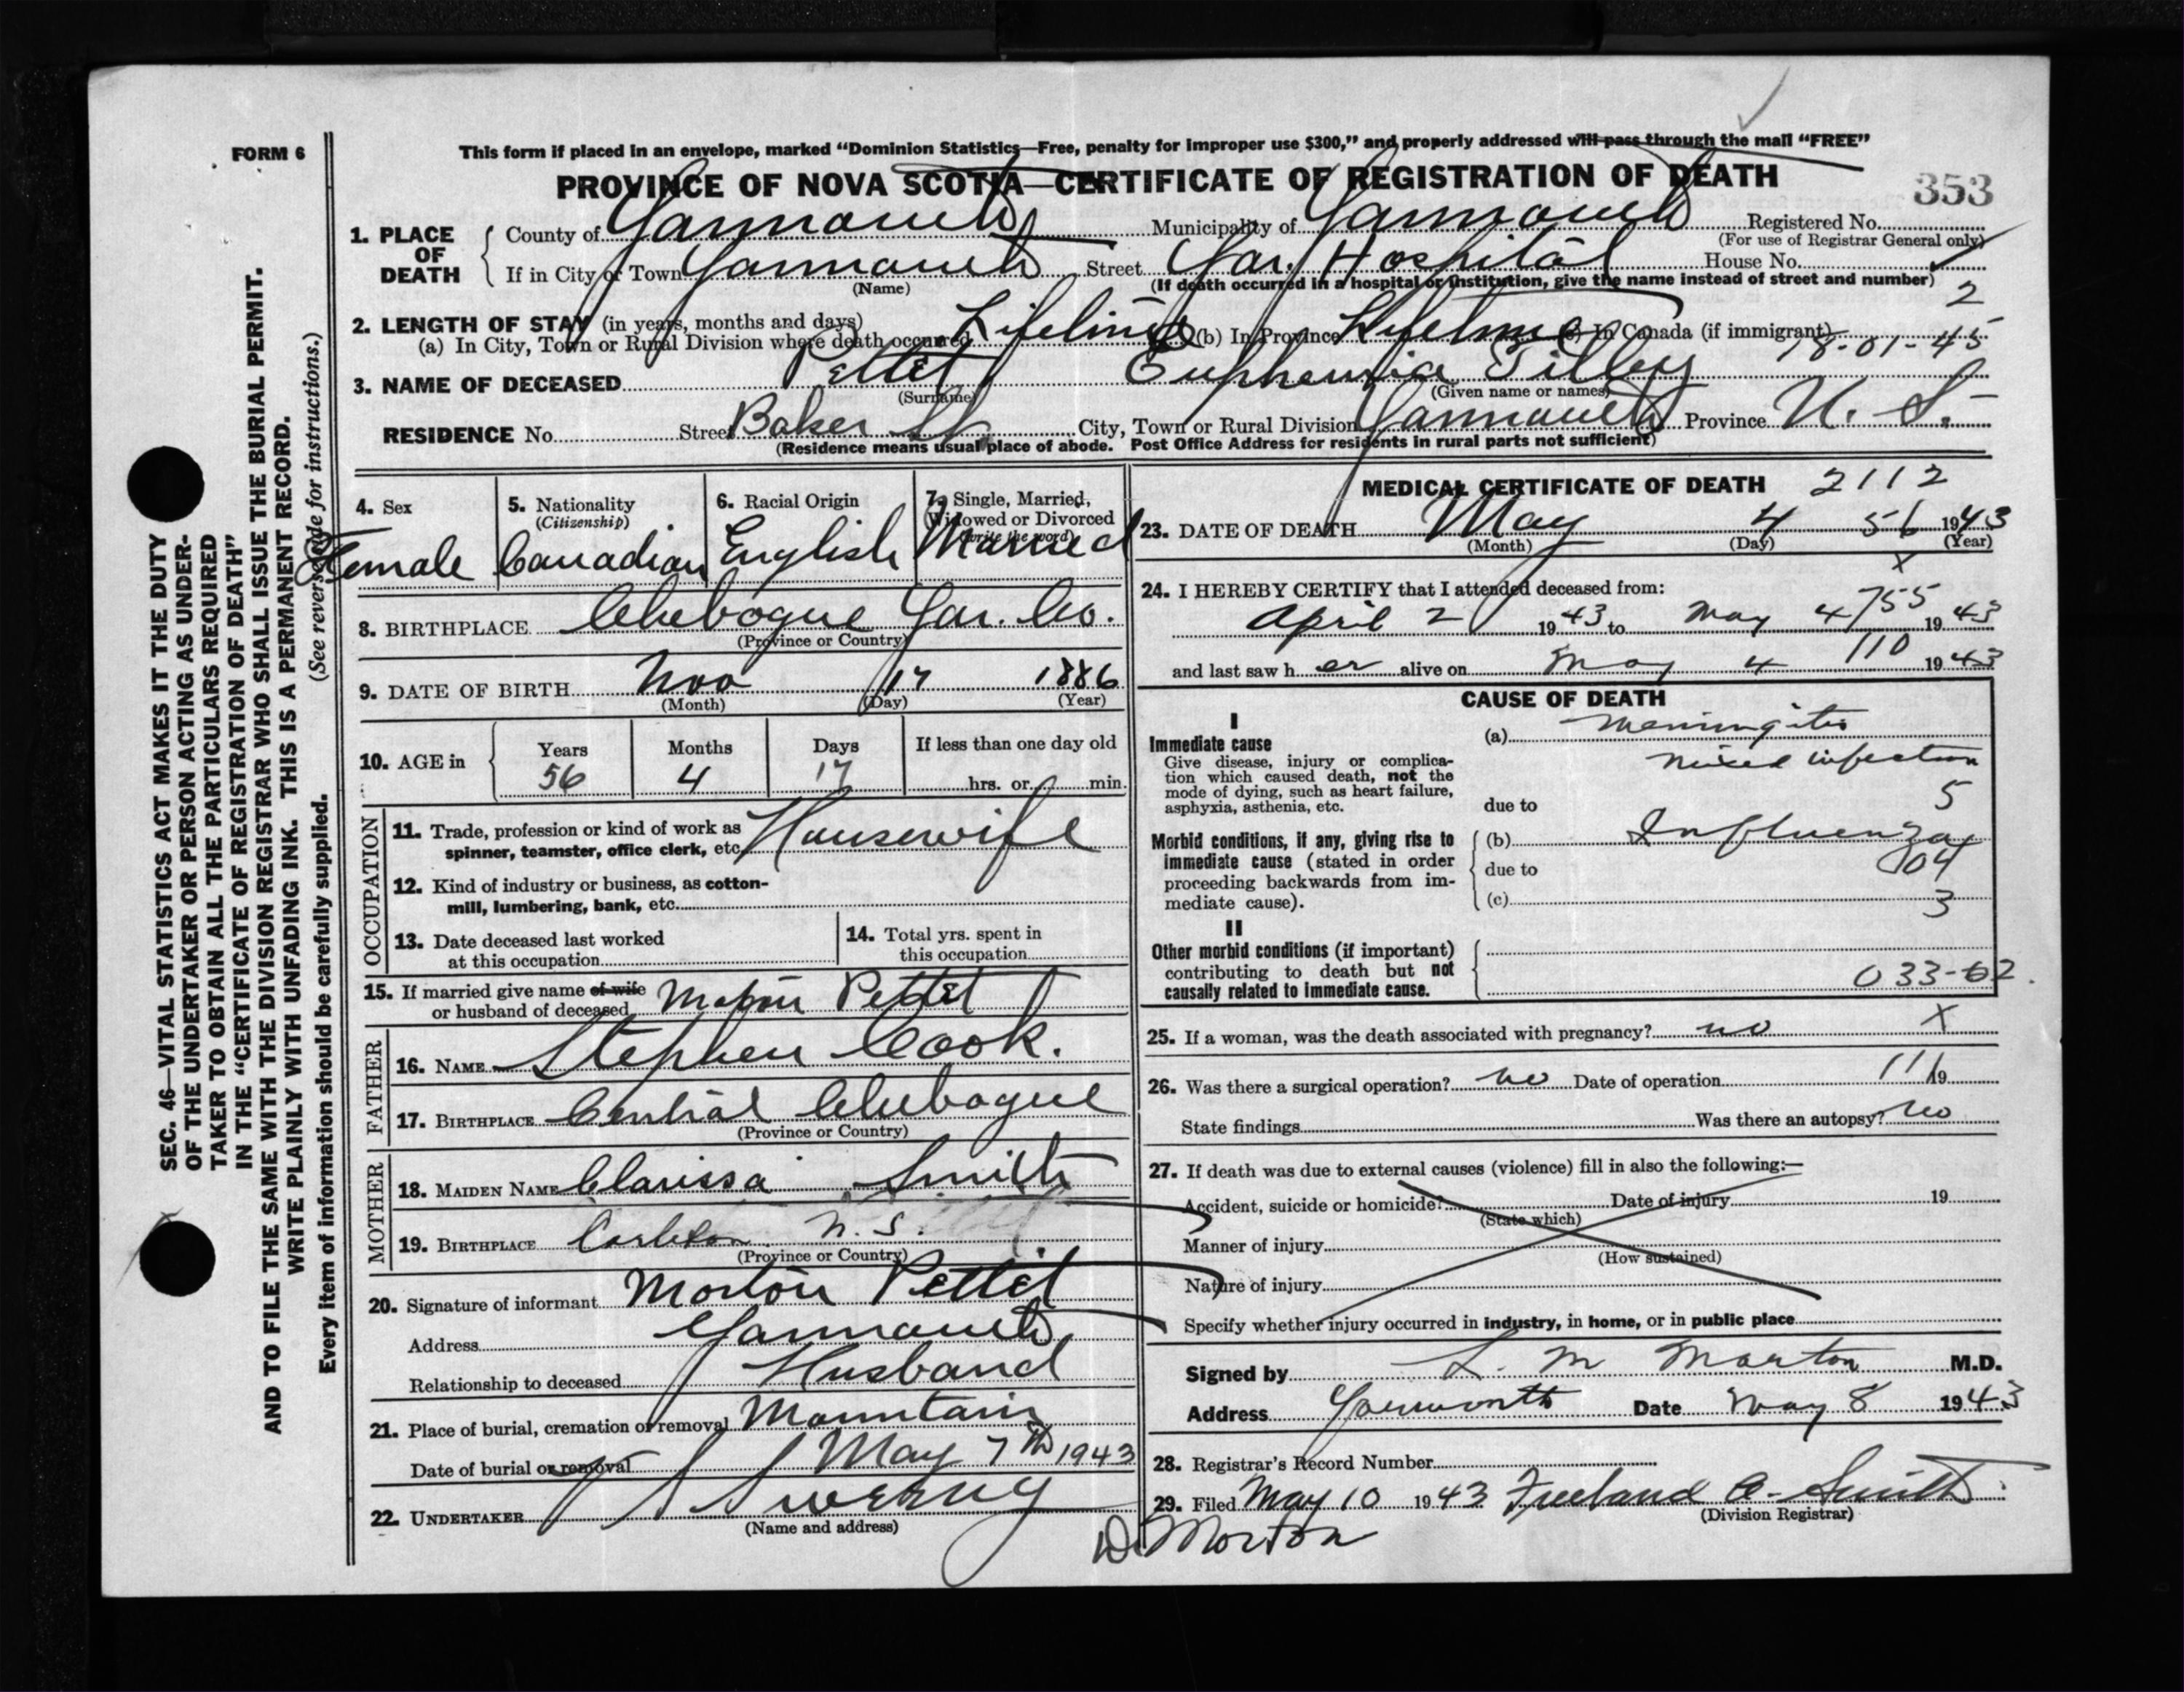 FORM 6
This form if placed in an envelope, marked “Dominion Statistics—Free, penalty for improper use $300,” and properly addressed will pass through the mail “FREE”
PROVINCE OF NOVA SCOTIA—CERTIFICATE OF REGISTRATION OF DEATH
353
1. PLACE OF DEATH
County of Yarmouth Municipality of Yarmouth Registered No.
(For use of Registrar General only)
If in City or Town Yarmouth Street Yar. Hospital House No.
(Name) (If death occurred in a hospital or institution, give the name instead of street and number)
2
2. LENGTH OF STAY (in years, months and days)
(a) In City, Town or Rural Division where death occurred Lifetime (b) In Province Lifetime (c) In Canada (if immigrant)
18-01-45
3. NAME OF DECEASED Pettet Euphemia Tilley
(Surname) (Given name or names)
RESIDENCE No. Street Baker St. City, Town or Rural Division Yarmouth Province N. S.
(Residence means usual place of abode. Post Office Address for residents in rural parts not sufficient)
4. Sex
Female
5. Nationality
(Citizenship)
Canadian
6. Racial Origin
English
7. Single, Married,
Widowed or Divorced
(write the word)
Married
8. BIRTHPLACE Chebogue Yar. Co.
(Province or Country)
9. DATE OF BIRTH Nov 17 1886
(Month) (Day) (Year)
10. AGE in
Years Months Days If less than one day old
56 4 17 hrs. or min.
OCCUPATION
11. Trade, profession or kind of work as
spinner, teamster, office clerk, etc. Housewife
12. Kind of industry or business, as cotton-
mill, lumbering, bank, etc.
13. Date deceased last worked
at this occupation
14. Total yrs. spent in
this occupation
15. If married give name of wife
or husband of deceased Pettet
FATHER
16. NAME Stephen Cook.
17. BIRTHPLACE Central Chebogue
(Province or Country)
MOTHER
18. MAIDEN NAME Clarissa Smith
19. BIRTHPLACE Carleton N. S.
(Province or Country)
20. Signature of informant Morton Pettet
Address Yarmouth
Relationship to deceased Husband
21. Place of burial, cremation or removal Mountain
Date of burial or removal May 7th 1943
22. UNDERTAKER V S Sweeny
(Name and address)
MEDICAL CERTIFICATE OF DEATH 2112
23. DATE OF DEATH May 4 56 1943
(Month) (Day) (Year)
X
24. I HEREBY CERTIFY that I attended deceased from:
755
April 2 1943 to May 4 1943
110
and last saw h er alive on May 4 1943
CAUSE OF DEATH
I
Immediate cause
Give disease, injury or complica-
tion which caused death, not the
mode of dying, such as heart failure,
asphyxia, asthenia, etc.
(a) Meningitis
mixed infection
5
due to
Morbid conditions, if any, giving rise to
immediate cause (stated in order
proceeding backwards from im-
mediate cause).
(b) Influenza
due to 04
(c) 3
II
Other morbid conditions (if important)
contributing to death but not
causally related to immediate cause.
033-62
25. If a woman, was the death associated with pregnancy? no X
26. Was there a surgical operation? no Date of operation 111 19
State findings Was there an autopsy? no
27. If death was due to external causes (violence) fill in also the following:—
Accident, suicide or homicide? Date of injury 19
(State which)
Manner of injury
(How sustained)
Nature of injury
Specify whether injury occurred in industry, in home, or in public place
Signed by L. M Morton M.D.
Address Yarmouth Date May 8 1943
28. Registrar's Record Number
29. Filed May 10 1943 Freeland A. Smith
(Division Registrar)
Dr Morton
SEC. 46—VITAL STATISTICS ACT MAKES IT THE DUTY
OF THE UNDERTAKER OR PERSON ACTING AS UNDER-
TAKER TO OBTAIN ALL THE PARTICULARS REQUIRED
IN THE “CERTIFICATE OF REGISTRATION OF DEATH”
AND TO FILE THE SAME WITH THE DIVISION REGISTRAR WHO SHALL ISSUE THE BURIAL PERMIT.
WRITE PLAINLY WITH UNFADING INK. THIS IS A PERMANENT RECORD.
(See reverse side for instructions.)
Every item of information should be carefully supplied.